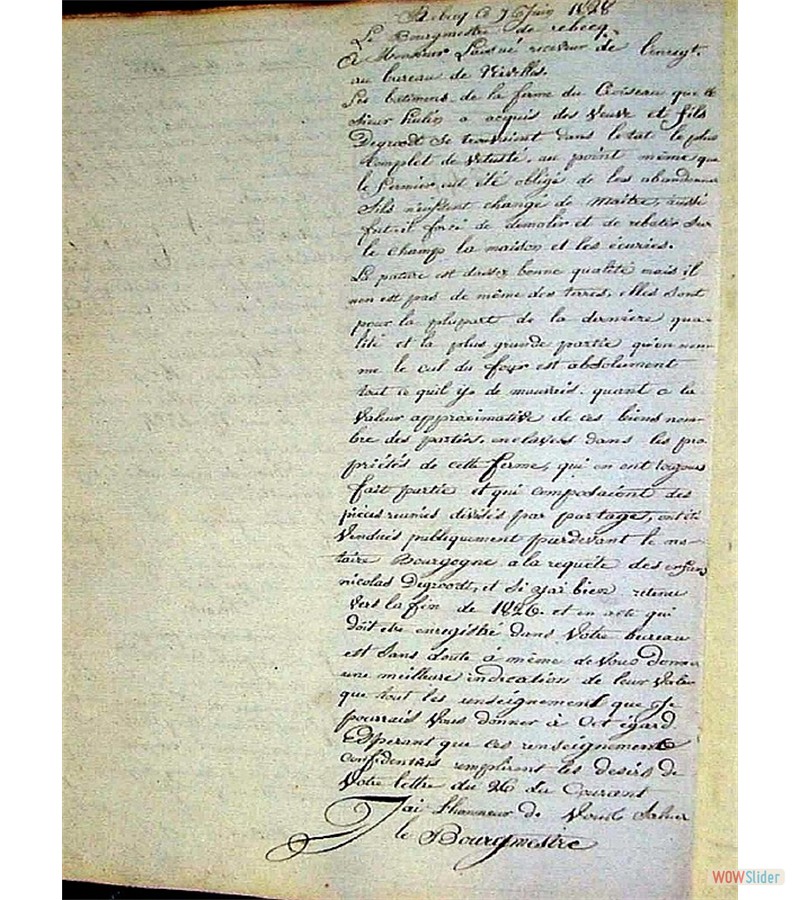 Rebecq le 7 Juin 1828
Le Bourgmestre de rebecq
A Monsieur receveur de l'enregt.
au bureau de Nivelles.
Les batimens de la ferme du Croiseau que le
sieur hulin a acquis des Veuve et fils
Degroodt se trouvoient dans letat le plus
complet de vetusté, au point même que
le fermier eut été obligé de les abandonner
Sils n'eussent changé de Maitre, aussi
fut-il forcé de demolir et de rebatir sur
le champ la maison et les écuries.
La pature est dassez bonne qualité mais il
non est pas de même des terres, elles sont
pour la plupart de la derniere qua-
lité et la plus grande partie qu'on nom-
me le cul du four est absolument
tout ce quil y a de mauvais. quant a la
Valeur approximative de ces biens nom-
bre des parties enclavees dans les pro-
priétés de cette ferme, qui en ont toujours
fait partie et qui composaiont des
pièces reunies divisés par partage, ont été
Vendues publiquement pardevant le no-
taire Bourgogne a la requête des enfans
nicolas Degroodt, et Si j'ai bien retenu
vers la fin de 1826 et en acte qui
doit etre enregistré dans Votre bureau
est sans doute à même de Vous donner
une meilleure indication de leur Valeur
que tout les enseignement que Je
pourrais Vous donner à Cet égard
Esperant que ces renseignement
confidentiels rempliront les desirs de
Votre lettre du 26 du Courant
J'ai l'honneur de Vous Saluer
le Bourgmestre
WOWSlider